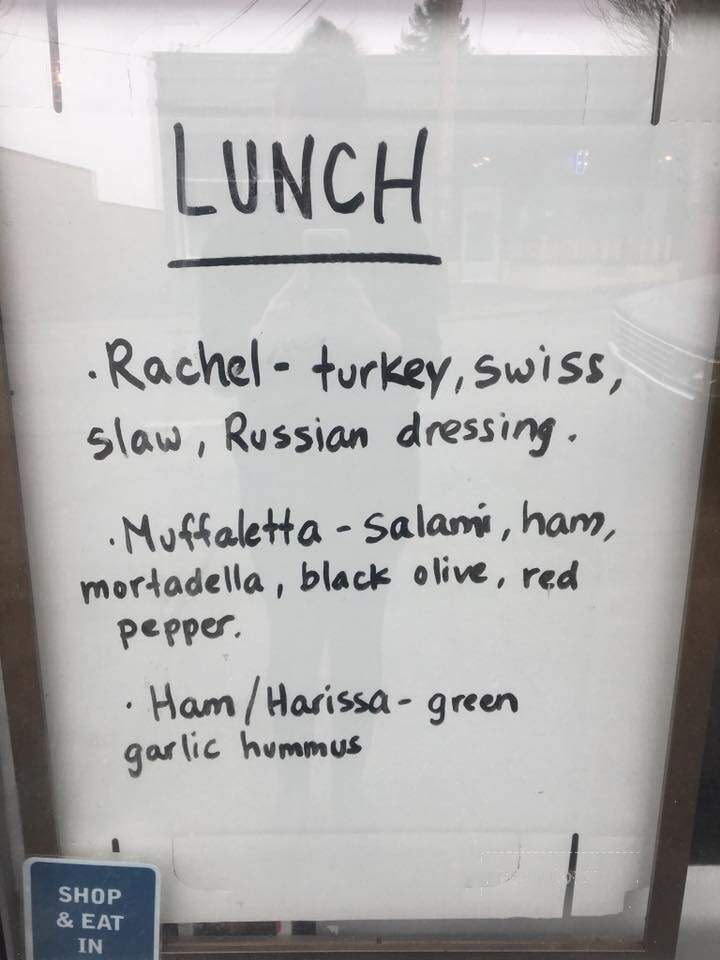 LUNCH
·Rachel - turkey, swiss,
slaw, Russian dressing.
·Muffaletta - salami, ham,
mortadella, black olive, red
pepper.
· Ham/Harissa - green
garlic hummus
SHOP
& EAT
IN